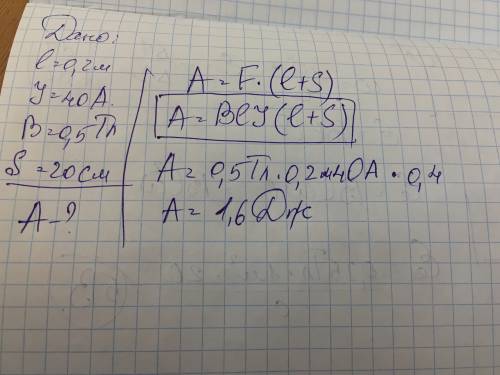 Дано:
l=0,2м
У=40А.
В=0,5Тл
S=20см
А-?
А=F·(l+S)
А=ВlУ(l+S)
А=0,5Тл·0,2м40А·0,4
А=1,6Дж